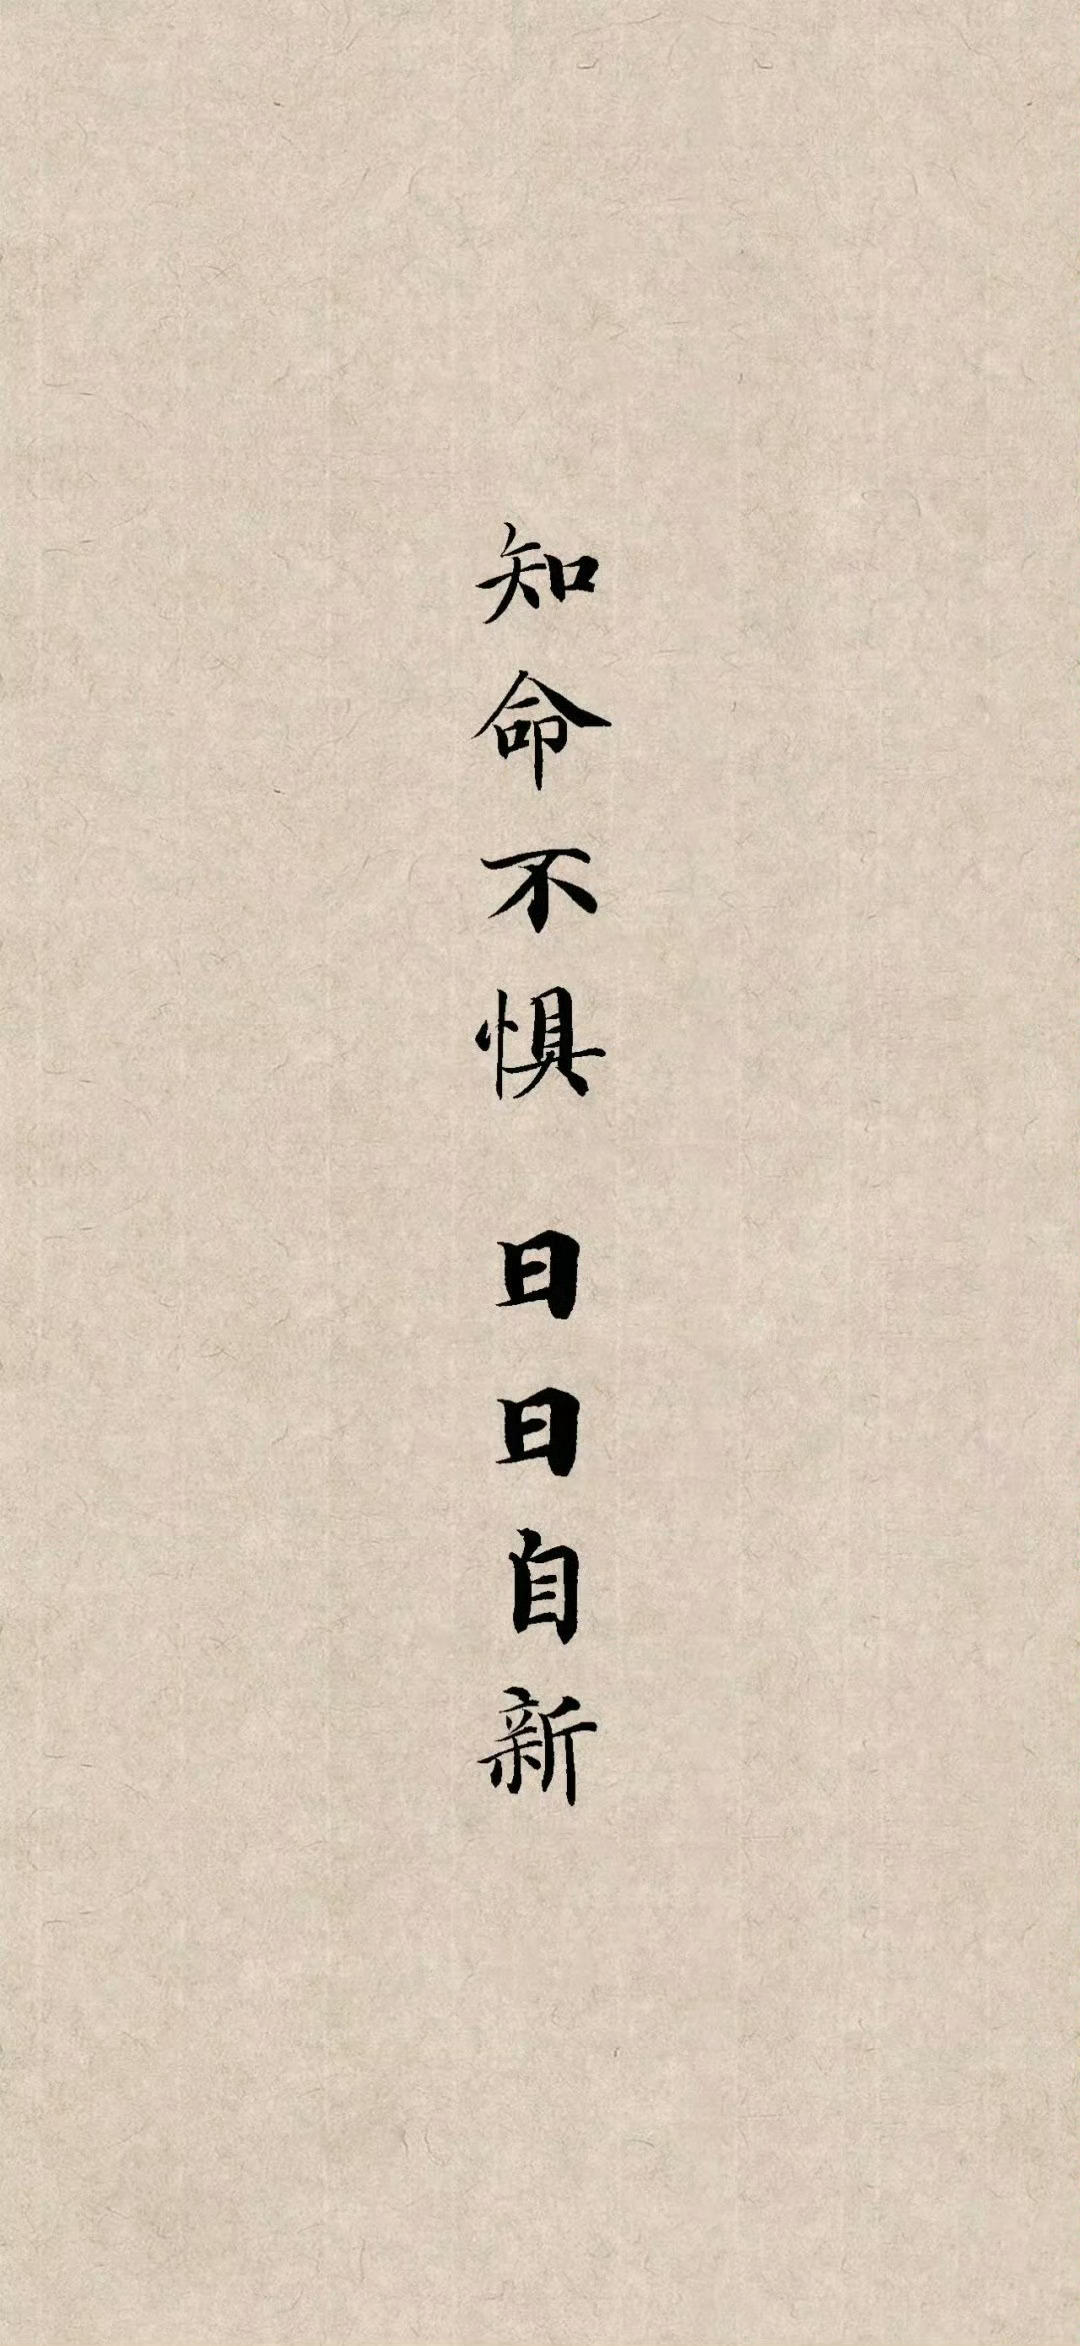 知命不惧 日日自新